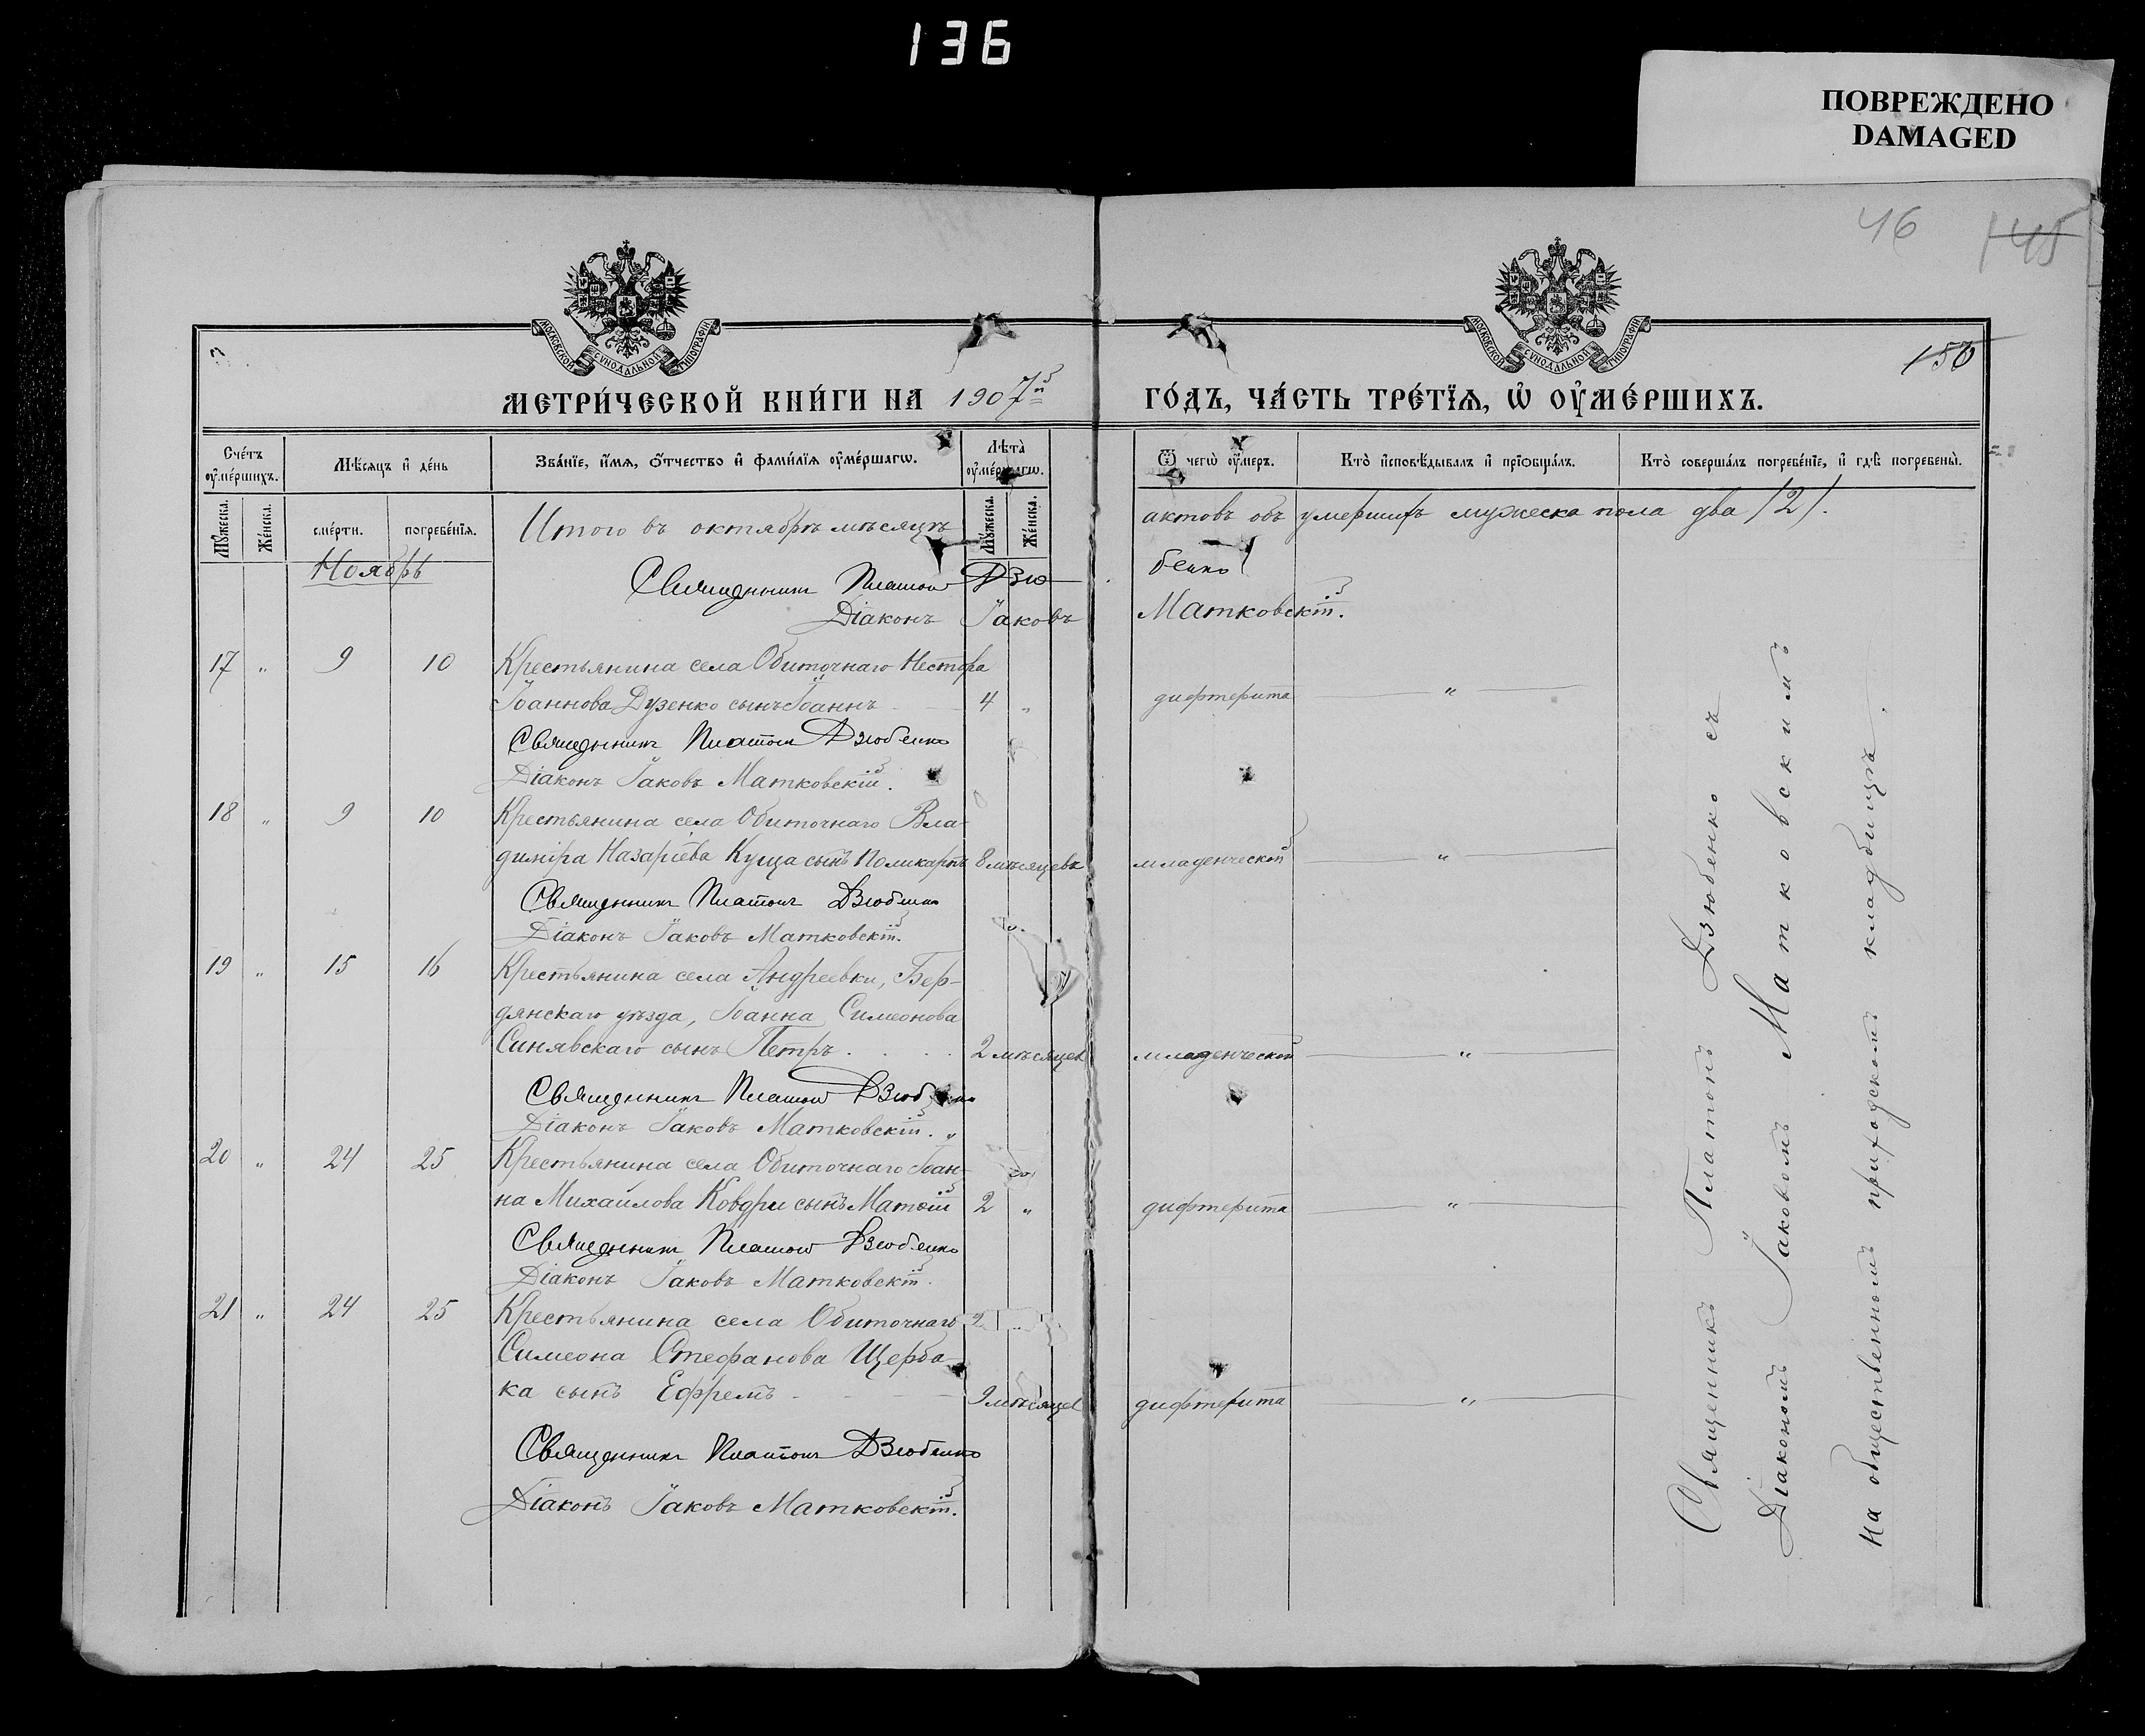 136
ПОВРЕЖДЕНО
DAMAGED
46 145
150
МОСКОВСКОЙ СУНОДАЛЬНОЙ ТИПОГРАФІИ
МОСКОВСКОЙ СУНОДАЛЬНОЙ ТИПОГРАФІИ
МЕТРИ́ЧЕСКОЙ КНИ́ГИ НА 1907й ГО́ДЪ, ЧА́СТЬ ТРЕ́ТЇѦ, Ѡ҆ ОУ҆МЕ́РШИХЪ.
Сче́тъ оу҆ме́ршихъ.
Мѣ́сяцъ и҆ де́нь
Зва́нїе, и҆́мѧ, ѻ҆́тчество и҆ фамилїѧ оу҆ме́ршагѡ.
Лѣта̀ оу҆ме́ршагѡ.
Ѿ чегѡ̀ оу҆́меръ.
Кто̀ и҆сповѣ́дывалъ и҆ прїѻбща́лъ.
Кто̀ соверша́лъ погребе́нїе, и҆ гдѣ̀ погребены̀.
Мꙋ́жеска.
Же́нска.
сме́рти.
погребе́нїѧ.
Мꙋ́жеска.
Же́нска.
Итого въ октябрѣ мѣсяцѣ актовъ объ умершихъ мужеска пола два /2/.
Ноябрь
Священникъ Платонъ Дзюбенко
Діаконъ Іаковъ Матковскій.
17 " 9 10 Крестьянина села Обиточнаго Нестора
Іоаннова Дузенко сынъ Іоаннъ 4 " дифтерита "
Священникъ Платонъ Дзюбенко
Діаконъ Іаковъ Матковскій.
18 " 9 10 Крестьянина села Обиточнаго Вла-
диміра Назаріева Куща сынъ Поликарпъ 8 мѣсяцевъ младенческой "
Священникъ Платонъ Дзюбенко
Діаконъ Іаковъ Матковскій.
19 " 15 16 Крестьянина села Андреевки, Бер-
дянскаго уѣзда, Іоанна Симеонова
Синявскаго сынъ Петръ. 2 мѣсяцев младенческой "
Священникъ Платонъ Дзюбенко
Діаконъ Іаковъ Матковскій.
20 " 24 25 Крестьянина села Обиточнаго Іоан-
на Михайлова Ковдри сынъ Матѳій 2 " дифтерита "
Священникъ Платонъ Дзюбенко
Діаконъ Іаковъ Матковскій.
21 " 24 25 Крестьянина села Обиточнаго
Симеона Стефанова Щерба-
ка сынъ Ефремъ 9 мѣсяцев дифтерита "
Священникъ Платонъ Дзюбенко
Діаконъ Іаковъ Матковскій.
Священникъ Платонъ Дзюбенко съ
Діакономъ Іаковомъ Матковскимъ
на общественномъ приходскомъ кладбищѣ.